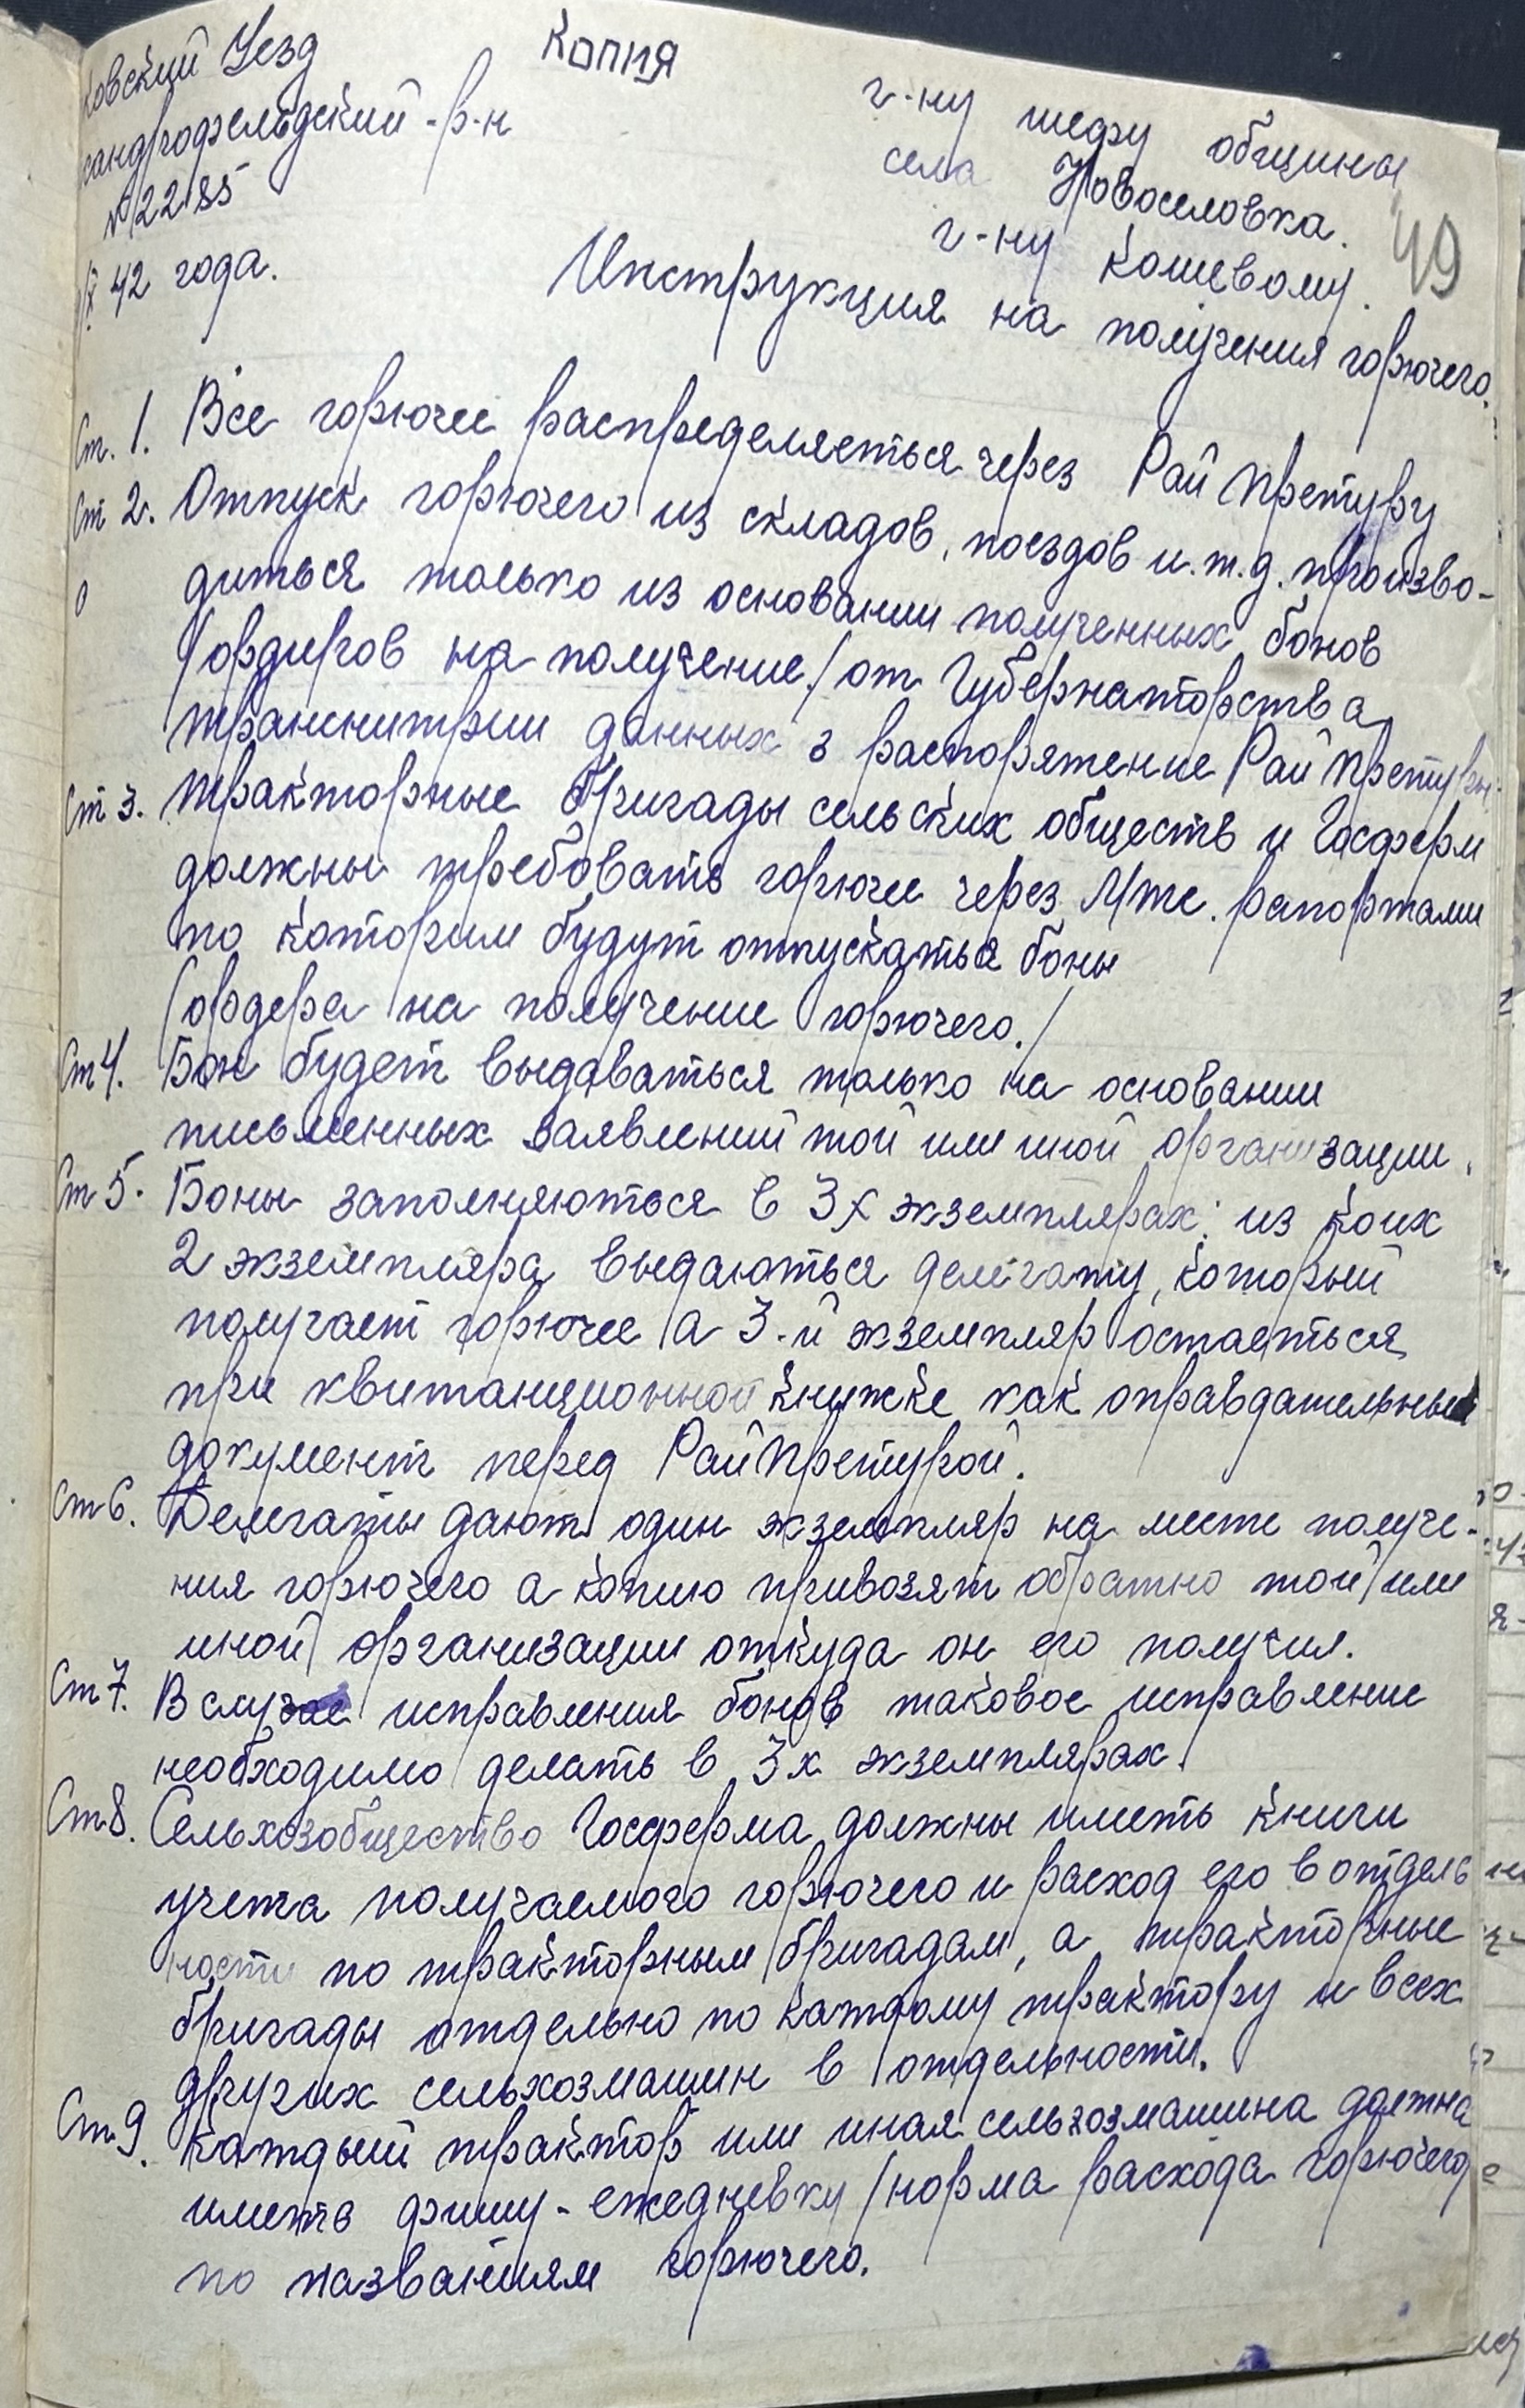 Копия
ковский Уезд
сандрофельдский - р-н
№ 2285
X 42 года.
г-ну шефу общины
села Новоселовка.
г-ну Кошевому.
49
Инструкция на получения горючего.
Ст. 1. Все горючее распределяеться через РайПретуру
Ст 2. Отпуск горючего из складов, поездов и.т.д. произво-
диться только из основании полученных бонов
/ордиров на получение/ от Губернаторства
транснитрии данных в распоряжение РайПретуры.
Ст 3. Тракторные бригады сельских обществ и Госферм
должны требовать горючее через Мтс. рапортами
по которим будут отпускаться боны
/ордера на получение горючего./
Ст 4. Бон будет выдаваться только на основании
письменных заявлений той или иной организации.
Ст 5. Боны заполняються в 3х экземплярах: из коих
2 экземпляра выдаються делегату, который
получает горючее а 3-й экземпляр остаеться
при квитанционной книжке как оправдательный
документ перед РайПретурой.
Ст 6. Делегаты дают один экземпляр на месте получе-
ния горючего а копию привозят обратно той или
иной организации откуда он его получил.
Ст 7. В случае исправления бонов таковое исправление
необходимо делать в 3х экземплярах.
Ст 8. Сельхозобщество Госферма должны иметь книги
учета получаемого горючего и расход его в отдель
ности по тракторным бригадам, а тракторные
бригады отдельно по каждому трактору и всех
других сельхозмашин в отдельности.
Ст 9. Каждый трактор или иная сельхозмашина должна
иметь фишу - ежедневку /норма расхода горючего
по названиям горючего.